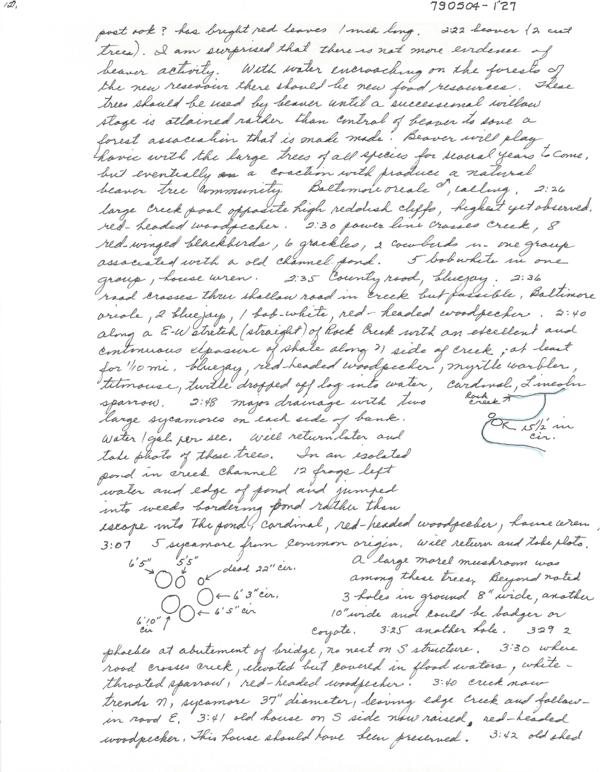 121.
790504-127
post oak? has bright red leaves 1 inch long. 2:22 beaver (2 cut
trees). I am surprised that there is not more evidence of
beaver activity. With water encroaching on the forests of
the new reservoir there should be new food resources. These
trees should be used by beaver until a successional willow
stage is attained rather than control of beaver to save a
forest association that is made made. Beaver will play
havic with the large trees of all species for several years to come,
but eventually a coaction with produce a natural
beaver tree community. Baltimore oriole ♂, calling. 2:26
large creek pool opposite high reddish cliffs, highest yet observed.
red-headed woodpecker. 2:30 power line crosses creek, 8
red-winged blackbirds, 6 grackles, 2 cowbirds in one group
associated with a old channel pond. 5 bobwhite in one
group, house wren. 2:35 County road, bluejay. 2:36
road crosses thru shallow road in creek but passible, Baltimore
oriole, 2 bluejay, 1 bob-white, red-headed woodpecker. 2:40
along a E-W stretch (straight) of Rock Creek with an excellent and
continuous exposure of shale along N side of creek; at least
for 1/10 mi. bluejay, red-headed woodpecker, myrtle warbler,
titmouse, turtle dropped off log into water, cardinal, Lincoln
sparrow. 2:48 major drainage with two
Rock
Creek
large sycamores on each side of bank.
15 1/2' in
cir.
Water 1 gal. per sec. Will return later and
take photo of these trees. In an isolated
pond in creek channel 12 frogs left
water and edge of pond and jumped
into weeds bordering pond rather than
escape into the pond, cardinal, red-headed woodpecker, house wren
3:07 5 sycamore from common origin. Will return and take photo.
6'5" 5'5" dead 22" cir.
6'3" cir.
6'5" cir
6'10"
cir
A large morel mushroom was
among these trees. Beyond noted
3 holes in ground 8" wide, another
10" wide and could be badger or
coyote. 3:25 another hole. 3:29 2
phoebes at abutement of bridge, no nest on S structure. 3:30 where
road crosses creek, elevated but covered in flood waters, white-
throated sparrow, red-headed woodpecker. 3:40 creek now
trends N, sycamore 37" diameter, leaving edge creek and follow-
in road E. 3:41 old house on S side now raised, red-headed
woodpecker. This house should have been preserved. 3:42 old shed